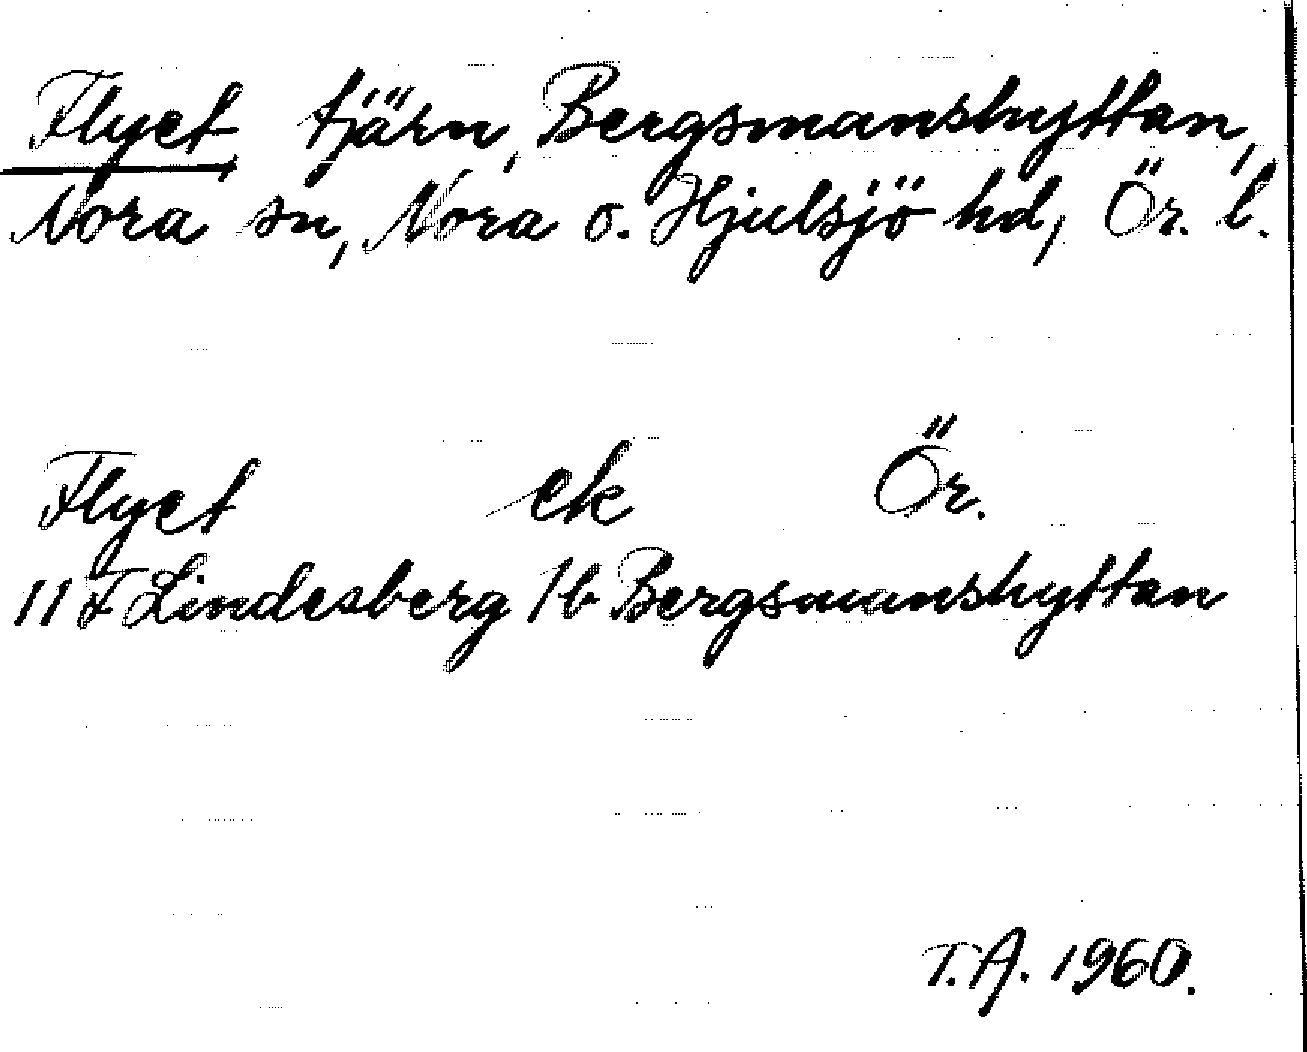 Flyet tjärn, Bergsmanshyttan,
Nora sn, Nora o. Hjulsjö hd, Ör. l.
Flyet ek Ör.
11 F Lindesberg 1b Bergsmanshyttan
T.A. 1960.